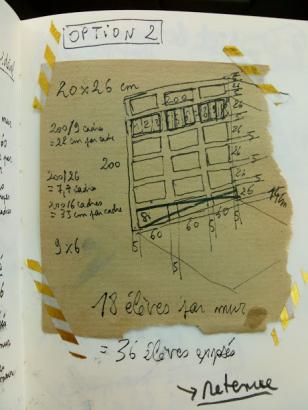 OPTION 2
20x26 cm
200
200/9 cadres
= 22 cm par cadre
200
200/26
= 7,7 cadres
200/6 cadres
= 33 cm par cadre
9x6
26
5
26
5
26
5
26
5 60 5 60 5 60 5
18 élèves par mur
= 36 élèves exposés
→ retenue